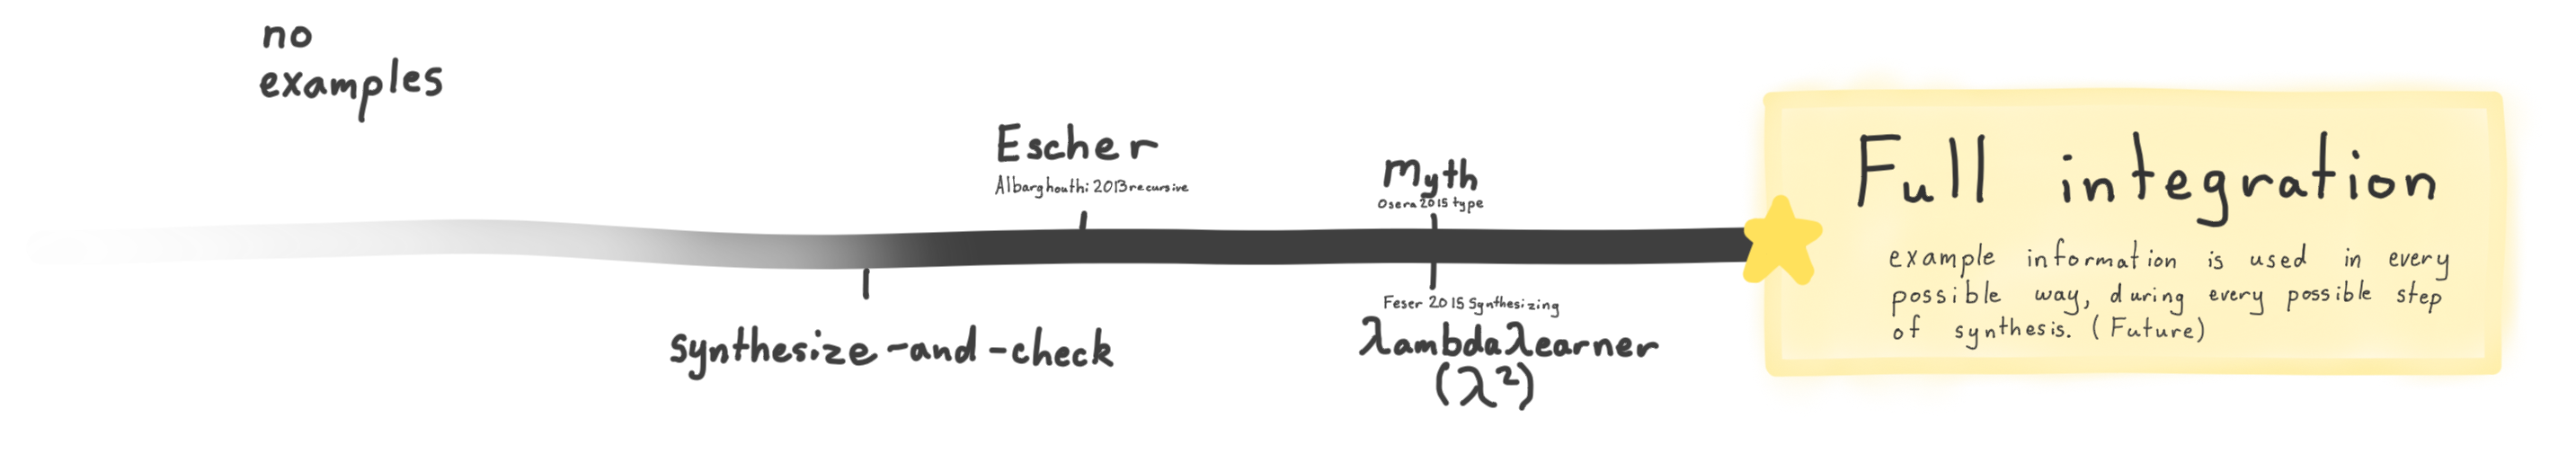 no
examples
Escher
Albarghouthi 2013 recursive
Myth
Osera 2015 type
synthesize-and-check
Feser 2015 Synthesizing
λambdaλearner
(λ²)
Full integration
example information is used in every
possible way, during every possible step
of synthesis. (Future)